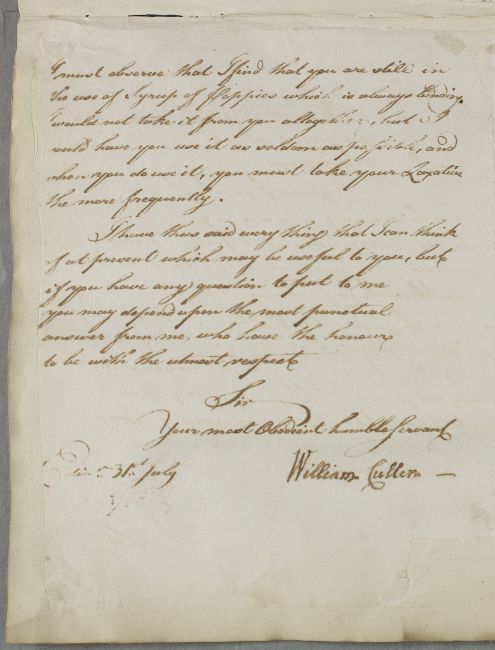 I must observe that I find that you are still in
the use of Syrup of Poppies which is always binding
I would not take it from you altogether, but I
would have you use it as seldom as possible, and
when you do use it, you must take your Laxative
the more frequently.
I have thus said every thing that I can think
of at present which may be useful to you, but
if you have any question to put to me
you may depend upon the most punctual
answer from me, who have the honour
to be with the utmost respect
Sir
Your most Obedient humble Servant
Edinr. 31st July
William Cullen —